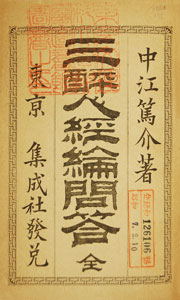 中江篤介著
三醉人經綸問答 全
東亰 集成社發兌
126106